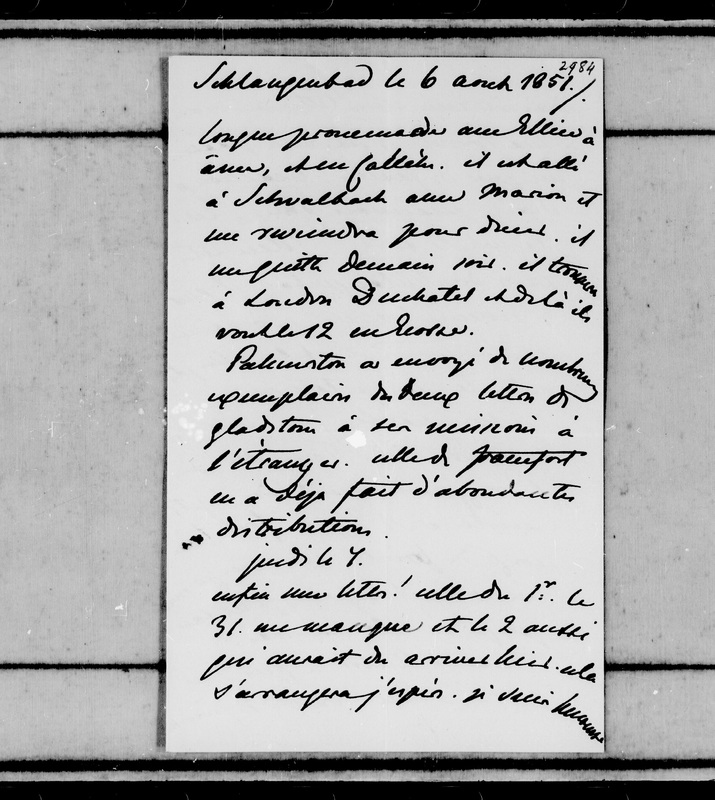 2984
Schlangenbad le 6 aout 1851./
longue promenade avec Ellice à
âne, et en calèche. il est allé
à Schwalbach avec Marion et
ne reviendra pour diner. il
me quitte demain soir. il trouvera
à Londres Duchatel et de là ils
vont le 12 en Ecosse.
Palmerston a envoyé de nombreux
exemplaires des deux lettres de
gladstone à ses missions à
l'étranger. celle de francfort
en a déja fait d'abondantes
distributions.
jeudi le 7.
enfin une lettre! celle du 1er. le
31. me manque et le 2 aussi
qui aurait du arriver hier. cela
s'arrangera j'espère. je suis heureuse